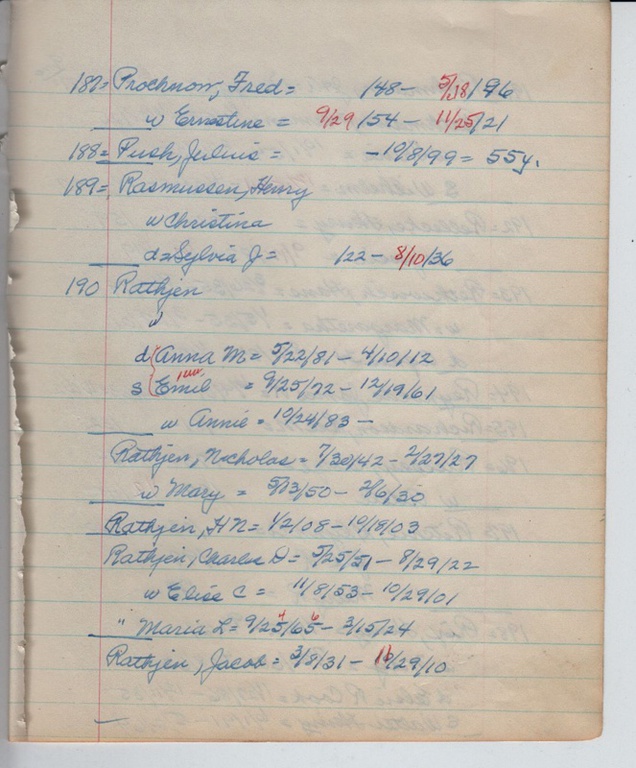 187= Prochnow, Fred = /48 - 5/18/96
w Ernestine = 9/29/54 - 11/25/21
188= Push, Julius = - 10/8/99 = 55y.
189= Rasmussen, Henry
w Christina
d= Sylvia J = /22 - 8/10/36
190 Rathjen
w
d Anna M = 5/22/81 - 4/10/12
s Emil = 9/25/72 - 12/19/61
w Annie = 10/24/83 -
Rathjen, Nicholas = 7/30/42 - 2/27/27
w Mary = 5/13/50 - 2/6/30
Rathjen, H N = 1/2/08 - 10/18/03
Rathjen, Charles D = 5/25/51 - 8/29/22
w Elise C = 11/8/53 - 10/29/01
" Maria L = 9/25/65 - 3/15/24
Rathjen, Jacob = 3/8/31 - /29/10